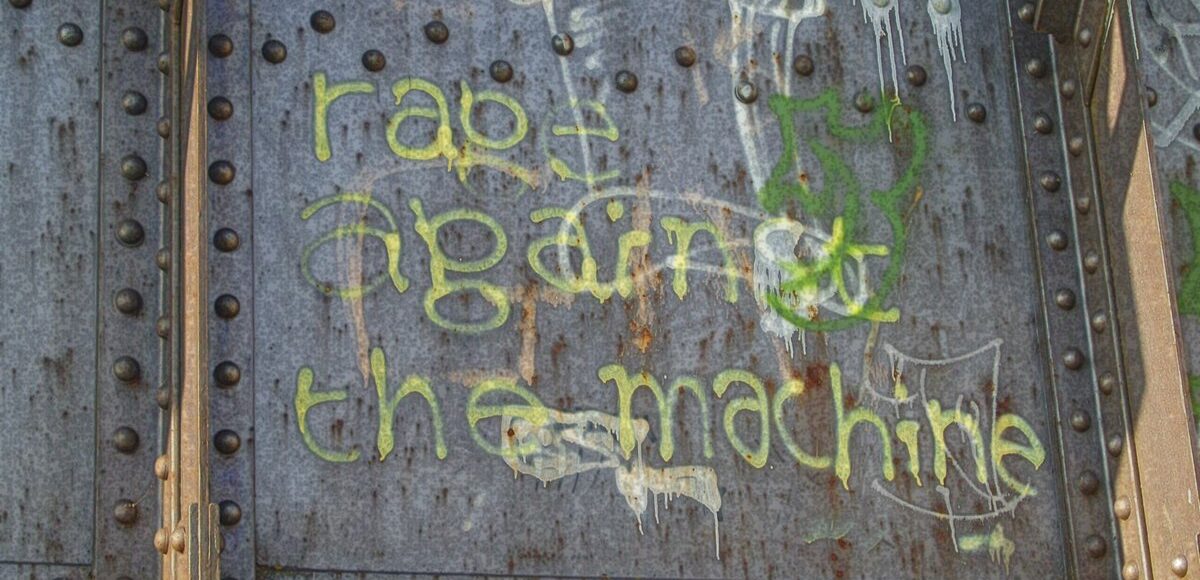 rage
against
the machine